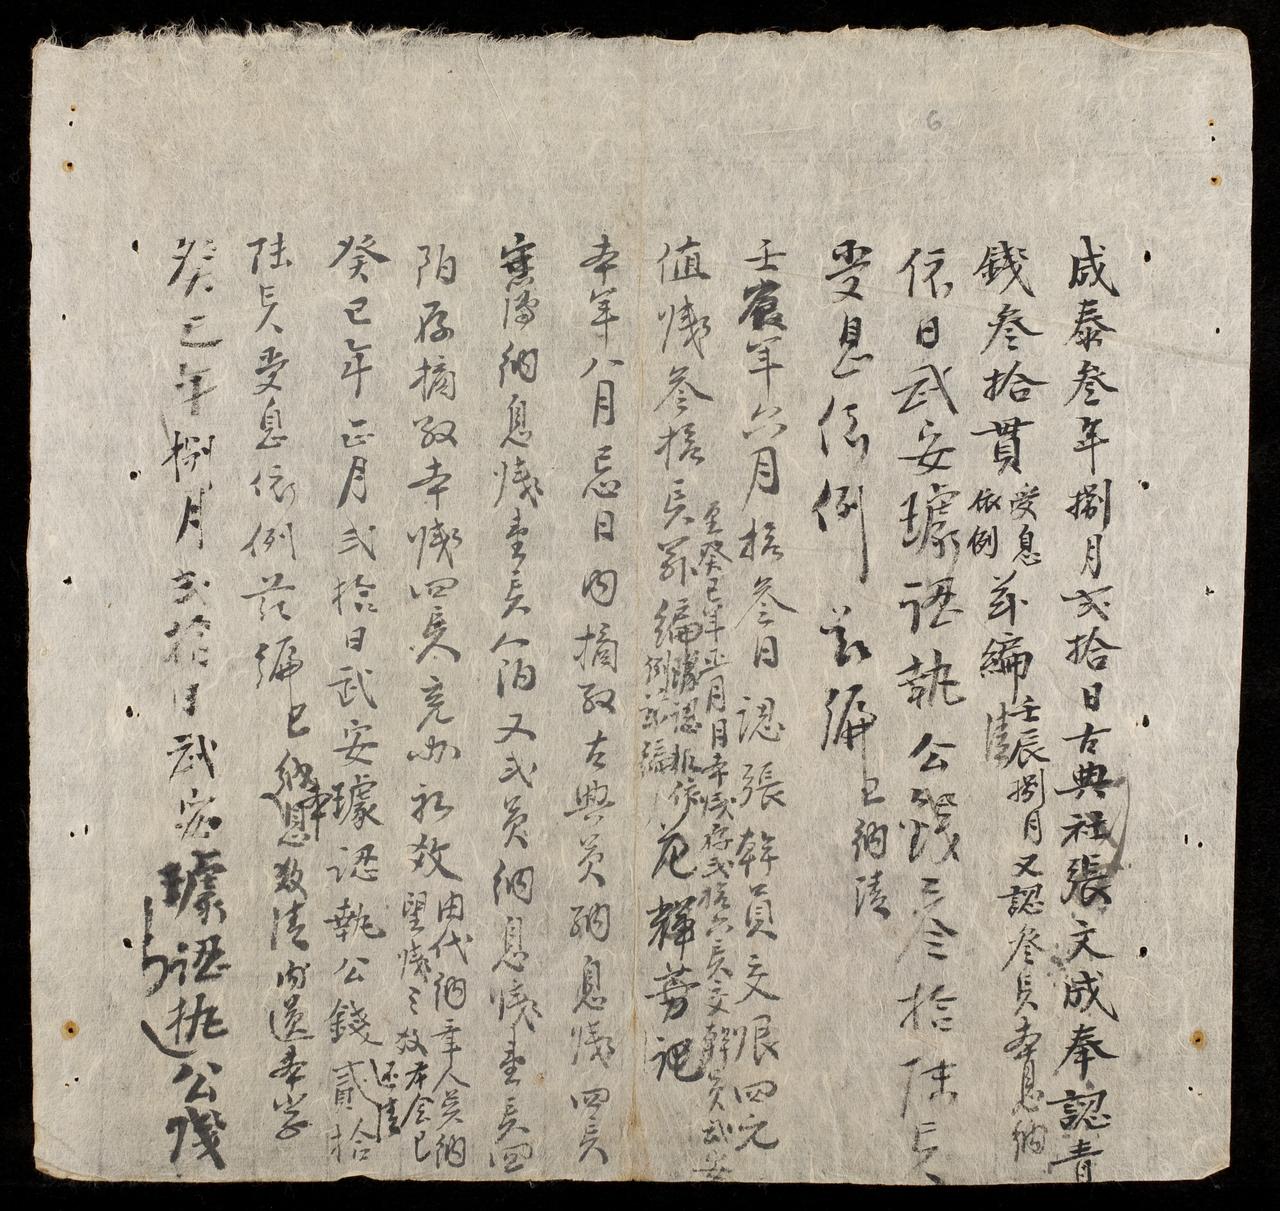 成泰叁年捌月弍拾日古典社張文成奉認青
錢叁拾貫受息依例茲編壬辰捌月又認叁貝本息納清
依日武安璩認執公錢叁拾陸貝
受息依例茲編已納清
壬辰年六月拾叁日認張幹員交限四元
至癸巳年正月日本錢存弍拾六貝交幹員武安
璩認執作例茲編
值錢叁拾貝茲編范輝芳記
本年八月忌日內摘取古典員納息錢四貝
納息錢壹貝人泊又弍員納息錢壹貝四
陌存摘取本錢四貝充如礼效由代納辛人員納望錢之效本会已还清
癸巳年正月弍拾日武安璩認執公錢貳拾
陸貝受息依例茲編已納本息效清內還本字
癸巳年捌月弍拾日武安璩認執公錢
6